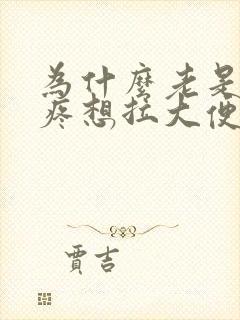 為什麼老是
疼想拉大便
賈吉